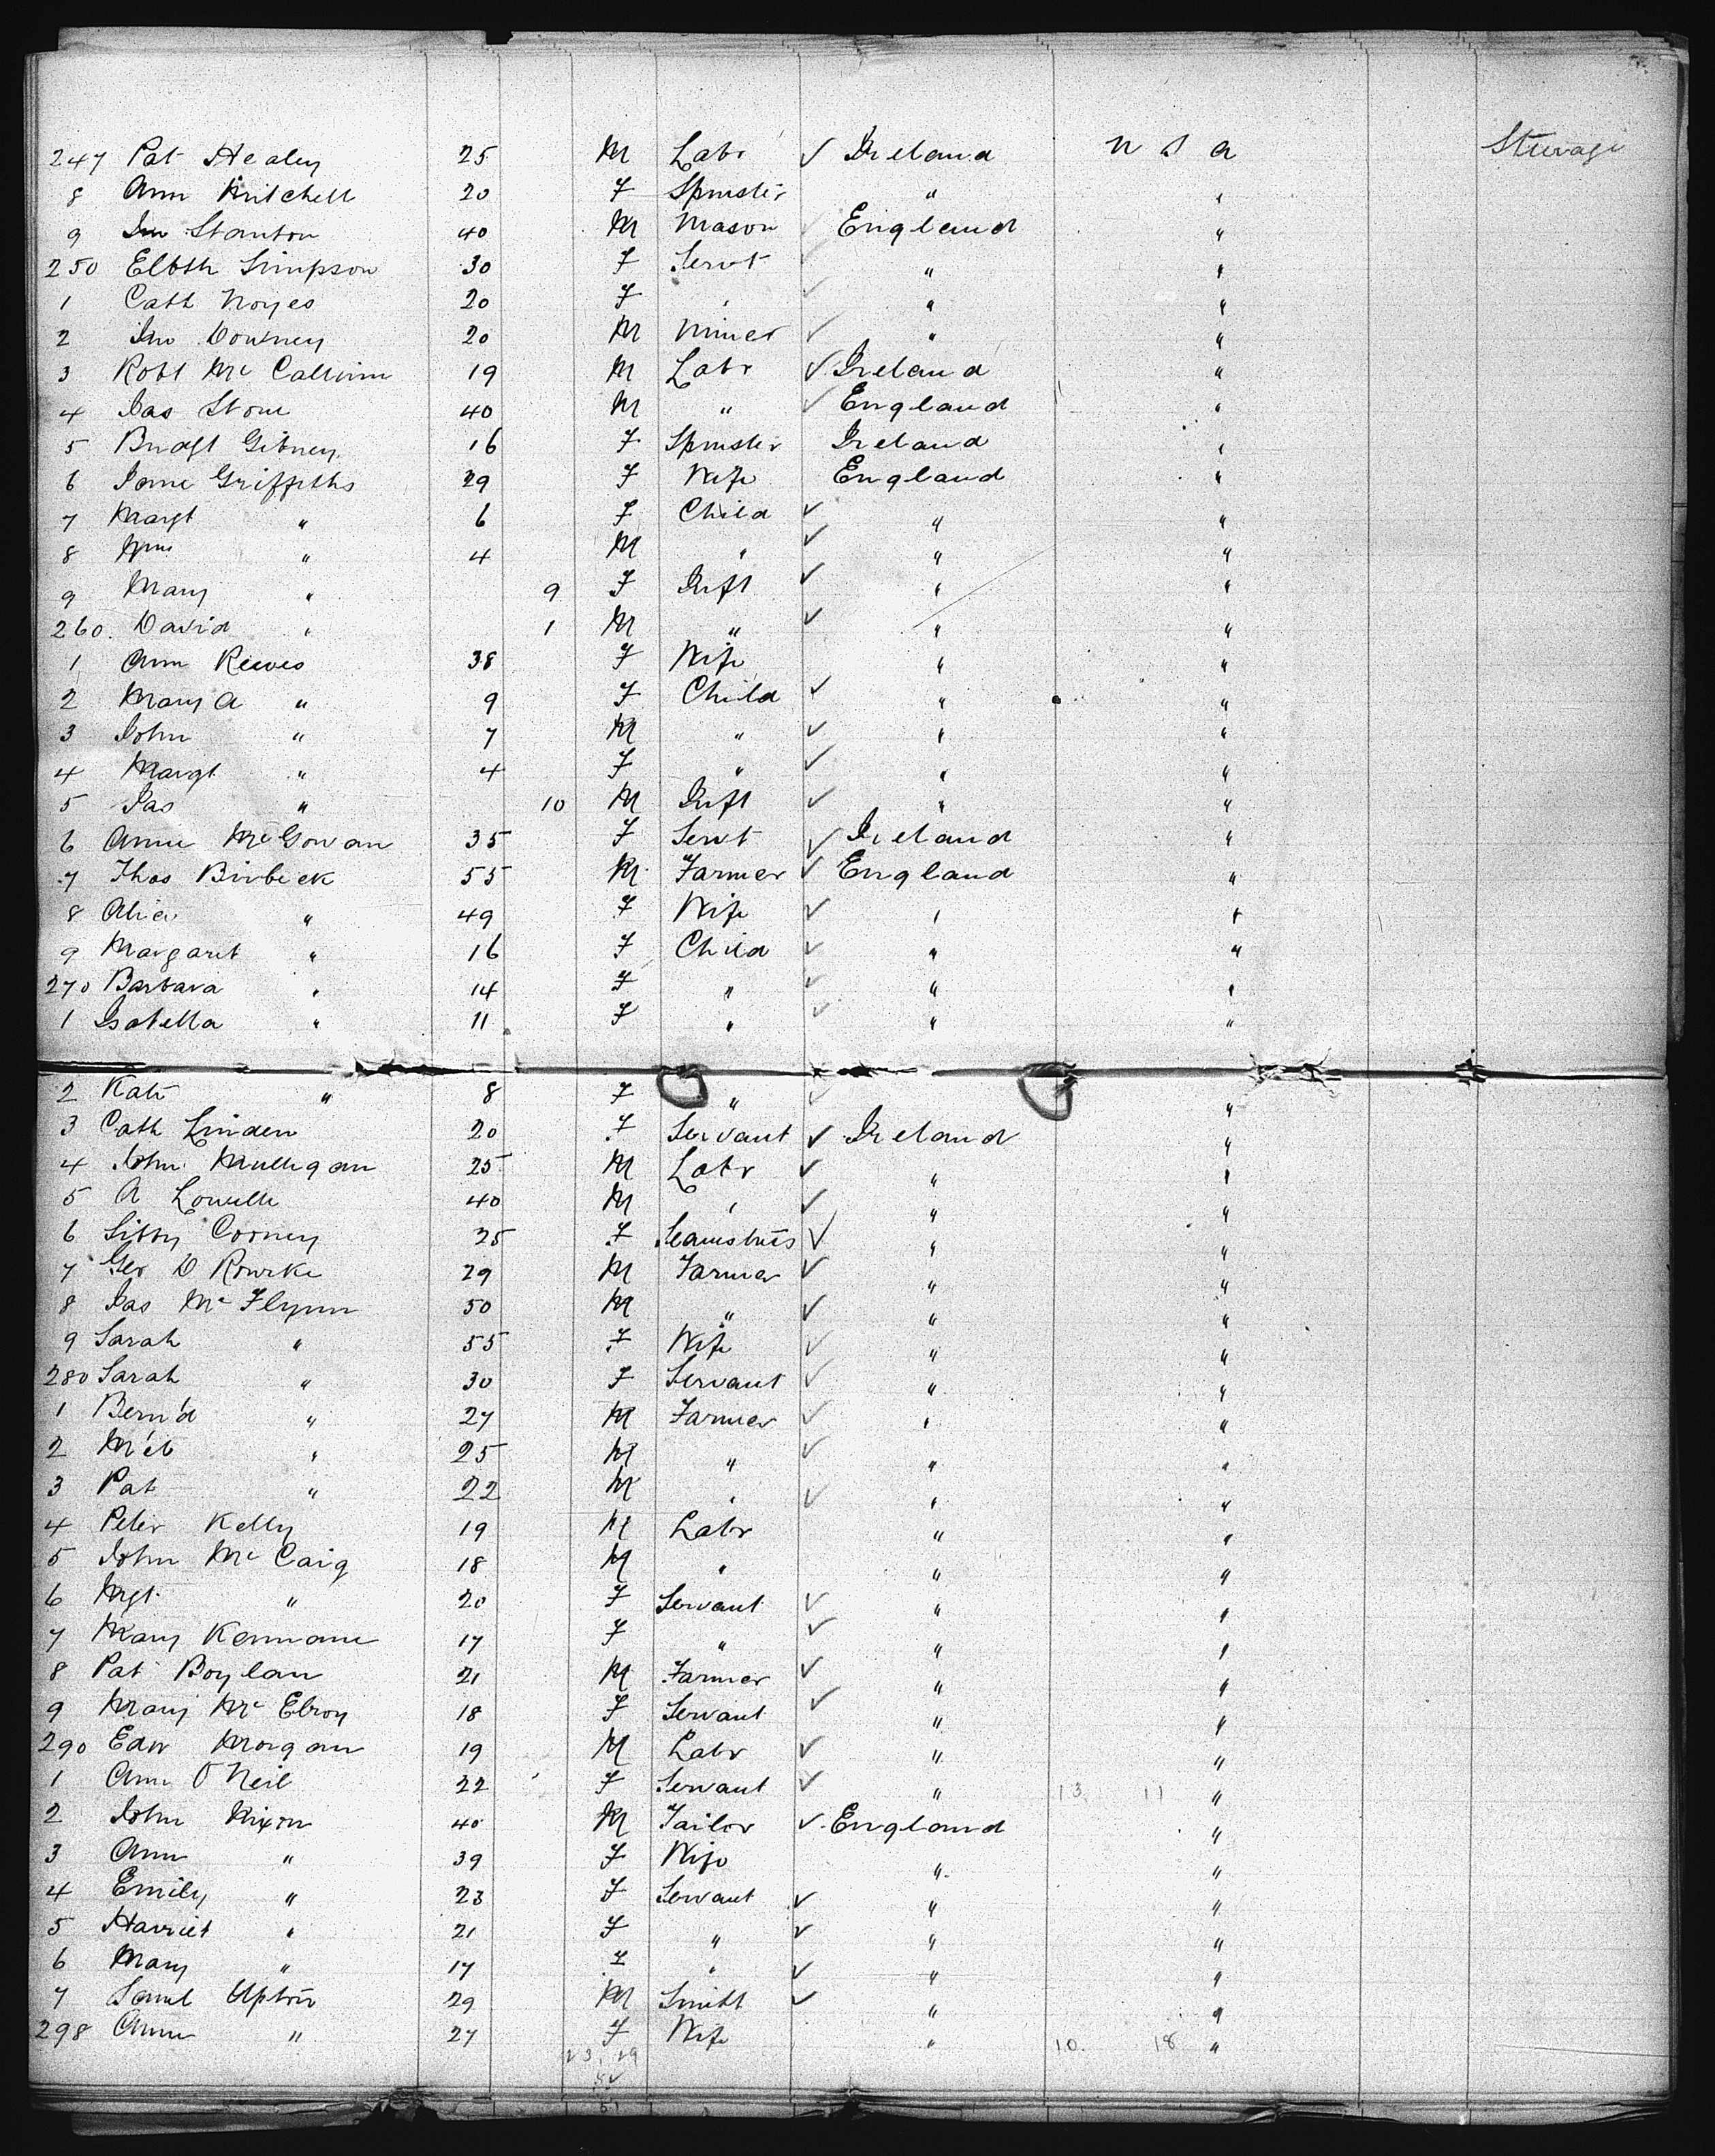 247 Pat Healey 25 M Labr ✓ Ireland U S A Steerage
8 Ann Mitchell 20 F Spinster " "
9 Jno Stanton 40 M Mason ✓ England "
250 Elbth Simpson 30 F Servt ✓ " "
1 Cath Noyes 20 F " ✓ " "
2 Jno Downey 20 M Miner ✓ " "
3 Robt Mc Callum 19 M Labr ✓ Ireland "
4 Jas Stone 40 M " ✓ England "
5 Bridgt Gibney 16 F Spinster Ireland "
6 Jane Griffiths 29 F Wife England "
7 Margt " 6 F Child ✓ " "
8 Wm " 4 M " ✓ " "
9 Mary " 9 F Inft ✓ " "
260. David " 1 M " ✓ " "
1 Ann Reeves 38 F Wife " "
2 Mary A " 9 F Child ✓ " "
3 John " 7 M " ✓ " "
4 Margt " 4 F " ✓ " "
5 Jas " 10 M Inft ✓ " "
6 Anne McGowan 35 F Servt ✓ Ireland "
7 Thos Birbeck 55 M Farmer ✓ England "
8 Alice " 49 F Wife ✓ " "
9 Margaret " 16 F Child ✓ " "
270 Barbara " 14 F " ✓ " "
1 Isabella " 11 F " ✓ " "
2 Kate " 8 F " ✓ "
3 Cath Linden 20 F Servant ✓ Ireland "
4 John Mulligan 25 M Labr ✓ " "
5 A 40 M " ✓ " "
6 Cooney 25 F Seamstress ✓ " "
7 Geo O Rourke 29 M Farmer ✓ " "
8 Jas Mc Flynn 50 M " ✓ " "
9 Sarah " 55 F Wife ✓ " "
280 Sarah " 30 F Servant ✓ " "
1 Bern'd " 27 M Farmer ✓ " "
2 " 25 M " ✓ " "
3 Pat " 22 M " ✓ " "
4 Peter Kelly 19 M Labr " "
5 John Mc Caig 18 M " " "
6 Mgt " 20 F Servant ✓ " "
7 Mary 17 F " ✓ " "
8 Pat Boylan 21 M Farmer ✓ " "
9 Mary Mc Elroy 18 F Servant ✓ " "
290 Edw Morgan 19 M Labr ✓ " "
1 Ann O'Neil 22 F Servant ✓ " 13 11 "
2 John Nixon 40 M Tailor ✓ England "
3 Ann " 39 F Wife " "
4 Emily " 23 F Servant ✓ " "
5 Harriet " 21 F " ✓ " "
6 Mary " 17 F " ✓ " "
7 Saml Upton 29 M Smith ✓ " "
298 Anne " 27 F Wife " 10. 18 "
23, 29